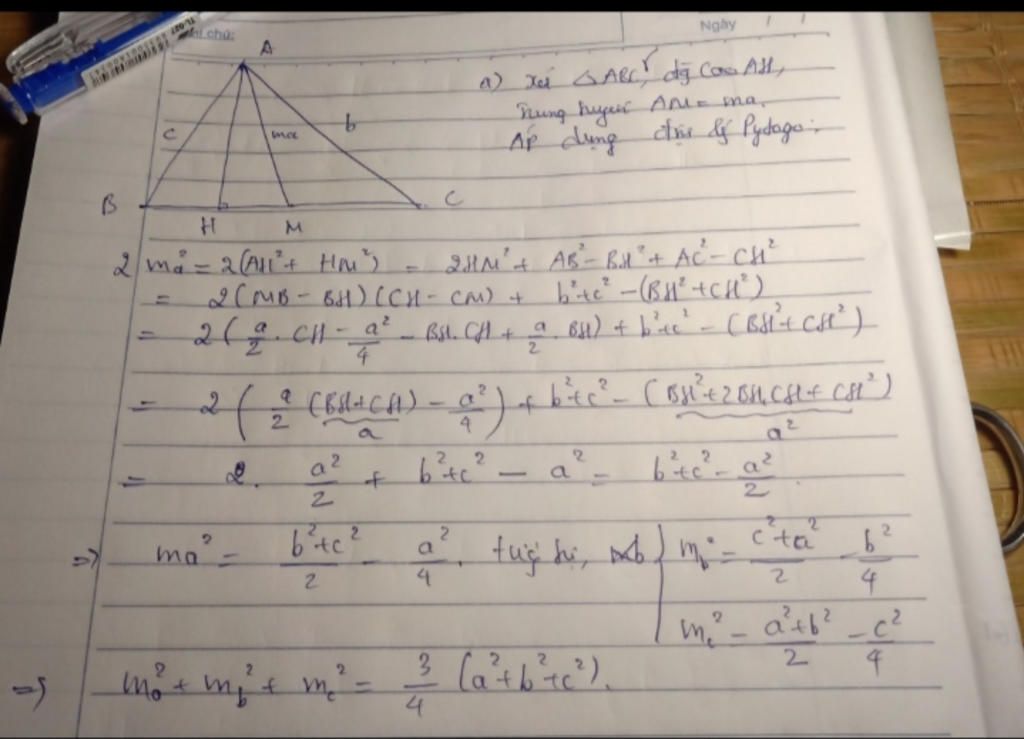 Ngày / /
hi chú:
A
c
ma
b
B
H
M
C
a) Xét △ABC, đg cao AH,
trung tuyến AM = ma.
Áp dụng định lý Pytago:
2 ma² = 2(AH² + HM²) = 2HM² + AB² - BH² + AC² - CH²
= 2(MB - BH)(CH - CM) + b² + c² - (BH² + CH²)
= 2(a/2 . CH - a²/4 - BH.CH + a/2 . BH) + b² + c² - (BH² + CH²)
= 2(a/2 (BH + CH) - a²/4) + b² + c² - (BH² + 2BH.CH + CH²)
a
a²
= 2. a²/2 + b² + c² - a² = b² + c² - a²/2.
=> ma² = b² + c²/2 - a²/4. tương tự, mb² = c² + a²/2 - b²/4
mc² = a² + b²/2 - c²/4
=> ma² + mb² + mc² = 3/4 (a² + b² + c²).